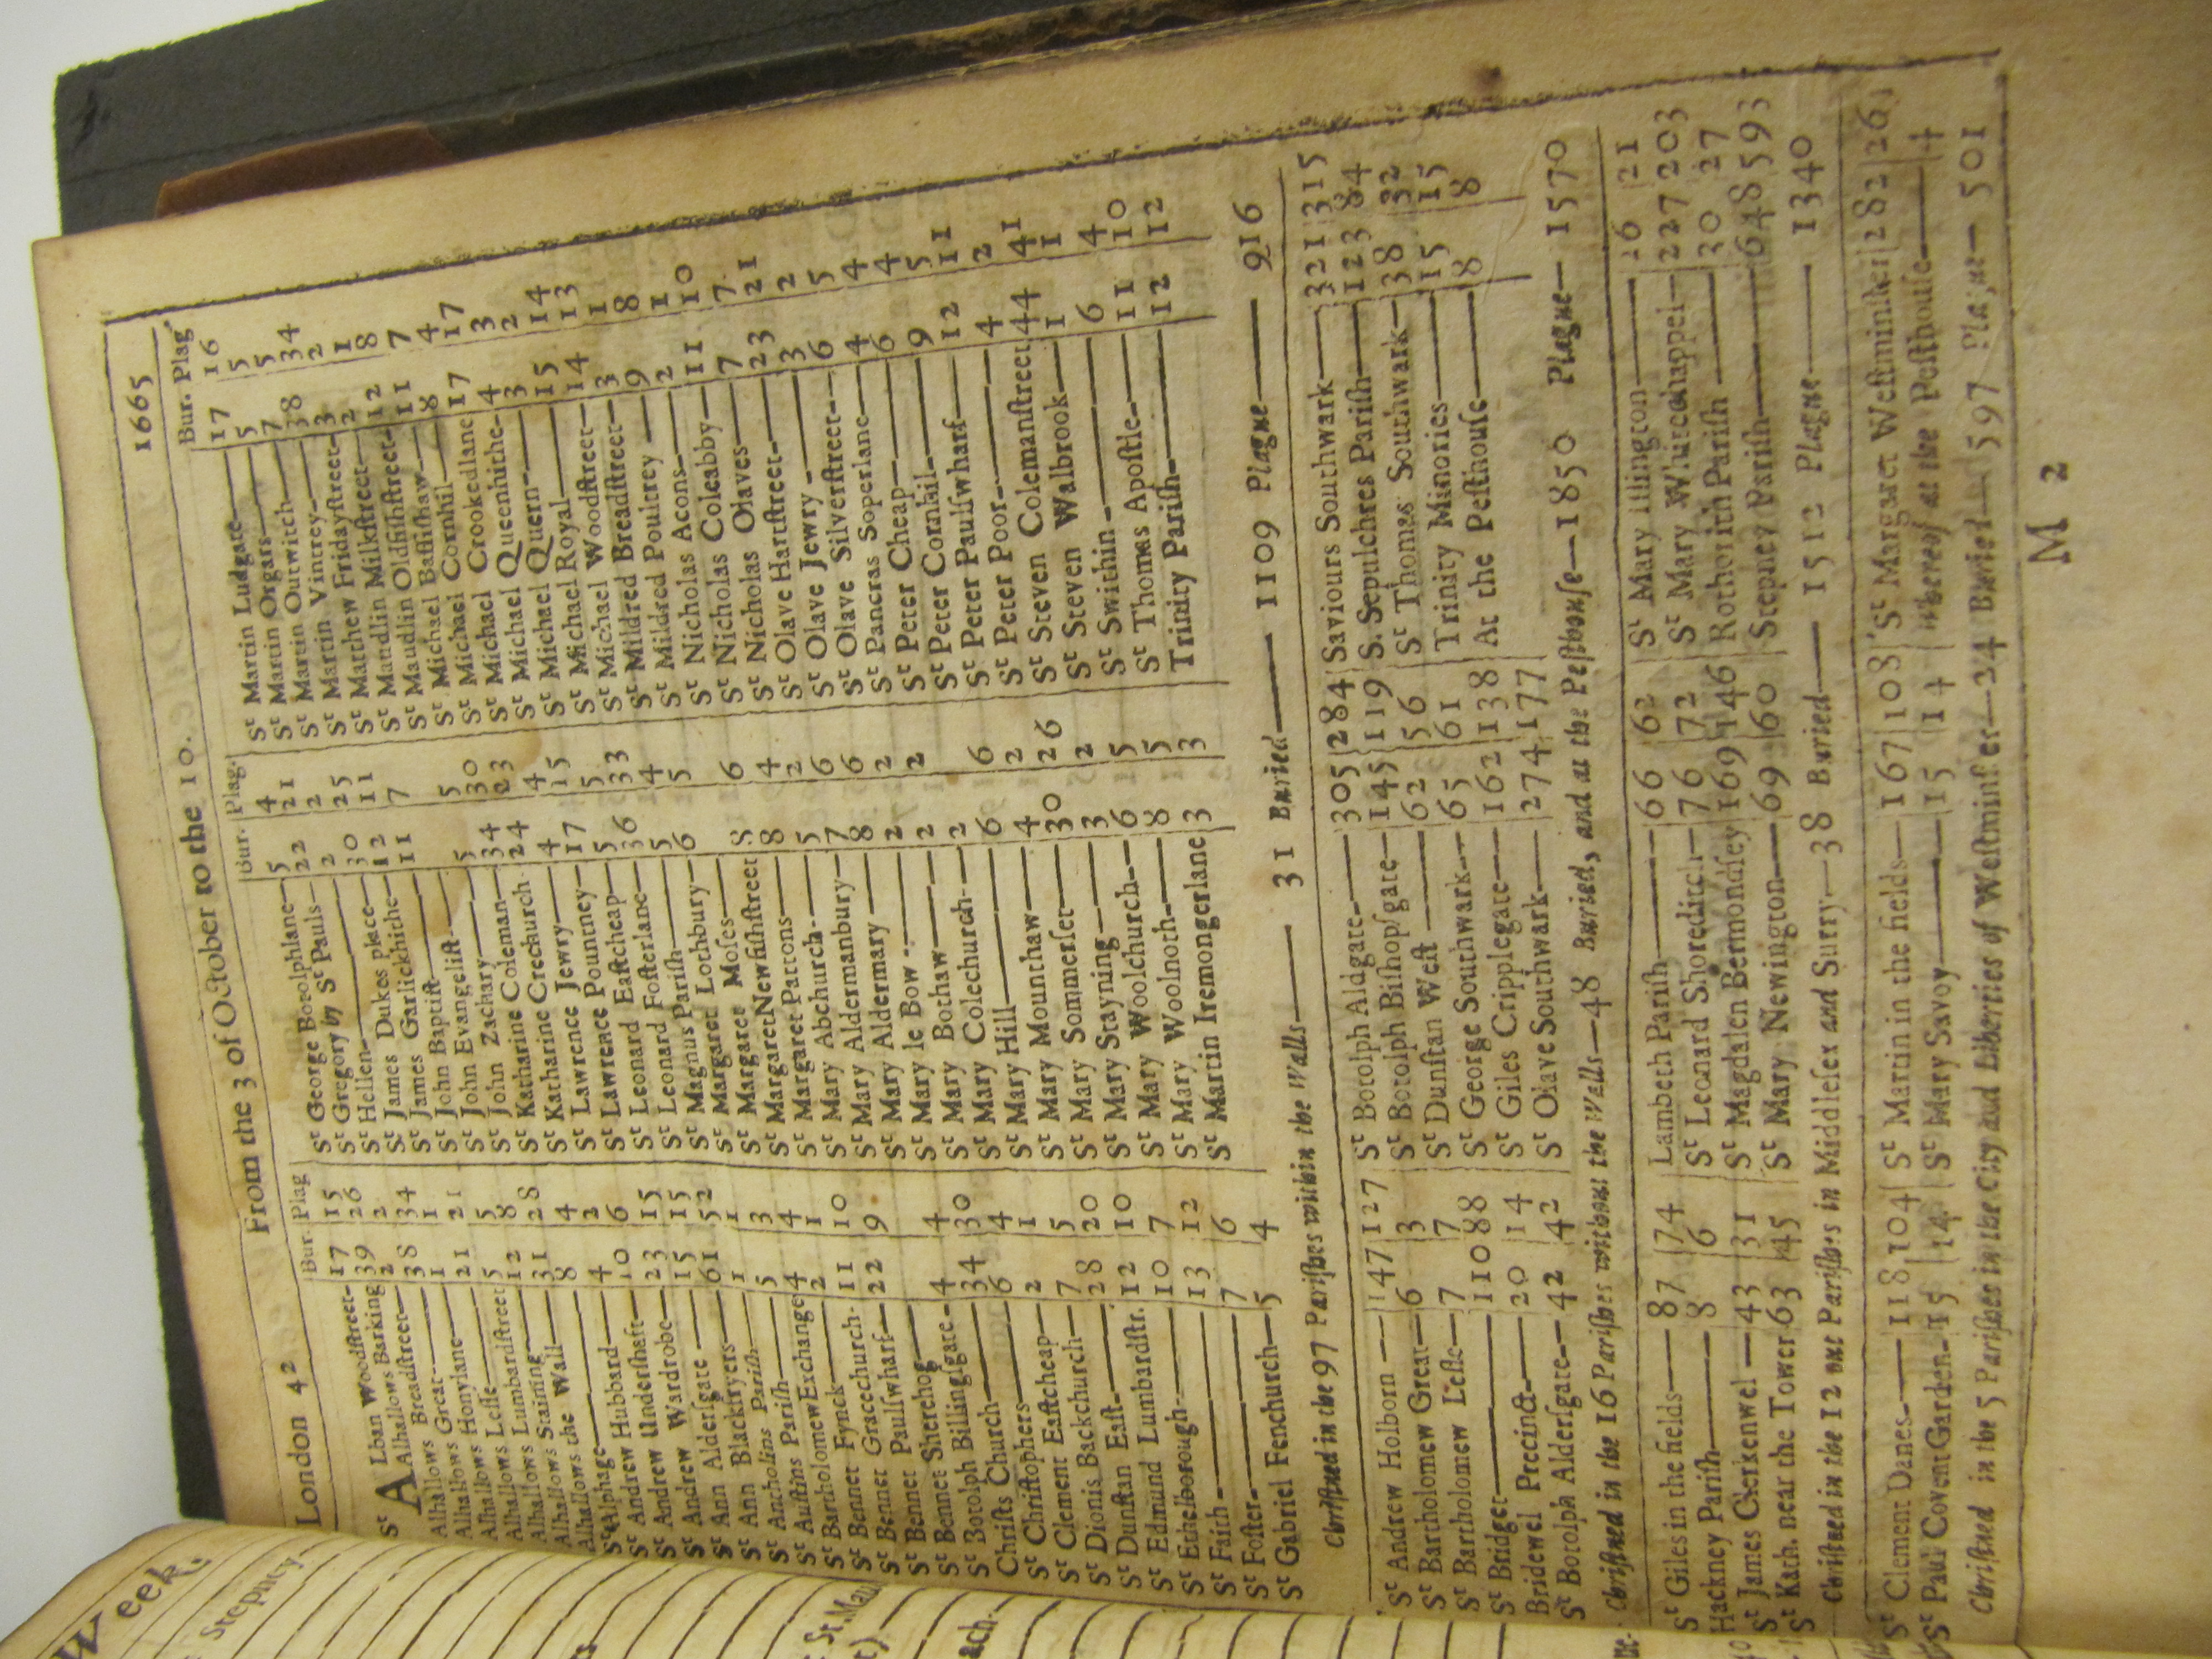 London 42 From the 3 of October to the 10. 1665
Bur. Plag
St ALban Woodstreet 17 15
Alhallows Barking 39 26
Alhallows Breadstreet 2 2
Alhallows Great 38 34
Alhallows Honylane 1 1
Alhallows Lesse 21 21
Alhallows Lumbardstreet 5 5
Alhallows Staining 12 8
Alhallows the Wall 31 28
St Alphage 8 4
St Andrew Hubbard 4 2
St Andrew Undershaft 10 6
St Andrew Wardrobe 23 15
St Ann Aldersgate 15 15
St Ann Blackfryers 61 52
St Antholins Parish 1 1
St Austins Parish 5 3
St Bartholomew Exchange 4 4
St Bennet Fynck 2 1
St Bennet Gracechurch 11 10
St Bennet Paulswharf 22 9
St Bennet Sherehog
St Botolph Billingsgate 4 4
Christs Church 34 30
St Christophers 6 4
St Clement Eastcheap 2 1
St Dionis Backchurch 7 5
St Dunstan East 28 20
St Edmund Lumbardstr. 12 10
St Ethelborough 10 7
St Faith 13 12
St Foster 7 6
St Gabriel Fenchurch 5 4
Bur. Plag.
St George Botolphlane 5 4
St Gregory by St Pauls 22 21
St Hellen 2 2
St James Dukes place 30 25
St James Garlickhithe 12 11
St John Baptist 11 7
St John Evangelist
St John Zachary 5 5
St Katharine Coleman 34 30
St Katharine Crechurch 24 23
St Lawrence Jewry 4 4
St Lawrence Pountney 17 15
St Leonard Eastcheap 5 5
St Leonard Fosterlane 36 33
St Magnus Parish 5 4
St Margaret Lothbury 6 5
St Margaret Moses
St Margaret Newfishstreet 8 6
St Margaret Pattons 8 4
St Mary Abchurch 5 2
St Mary Aldermanbury 7 6
St Mary Aldermary 8 6
St Mary le Bow 2 2
St Mary Bothaw 2 2
St Mary Colechurch 2
St Mary Hill 6 6
St Mary Mounthaw 4 2
St Mary Sommerset 30 26
St Mary Stayning 3 2
St Mary Woolchurch 6 5
St Mary Woolnoth 8 5
St Martin Iremongerlane 3 3
Bur. Plag
St Martin Ludgate 17 16
St Martin Orgars 5 5
St Martin Outwitch 7 5
St Martin Vintrey 38 34
St Matthew Fridaystreet 3 2
St Maudlin Milkstreet 2 1
St Maudlin Oldfishstreet 12 8
St Michael Bassishaw 11 7
St Michael Cornhil 8 4
St Michael Crookedlane 17 17
St Michael Queenhithe 4 3
St Michael Quern 3 2
St Michael Royal 15 14
St Michael Woodstreet 14 13
St Mildred Breadstreet 3 1
St Mildred Poultrey 9 8
St Nicholas Acons 2 1
St Nicholas Coleabby 11 10
St Nicholas Olaves 7 7
St Olave Hartstreet 23 21
St Olave Jewry 3 2
St Olave Silverstreet 6 5
St Pancras Soperlane 4 4
St Peter Cheap 6 4
St Peter Cornhil 9 5
St Peter Paulswharf 12 11
St Peter Poor 4 2
St Steven Colemanstreet 44 41
St Steven Walbrook 1 1
St Swithin 6 4
St Thomas Apostle 11 10
Trinity Parish 12 12
Christned in the 97 Parishes within the Walls — 31 Buried — 1109 Plague — 916
St Andrew Holborn 147 127
St Bartholomew Great 6 3
St Bartholomew Lesse 7 7
St Bridget 110 88
Bridewel Precinct 20 14
St Botolph Aldersgate 42 42
St Botolph Aldgate 305 284
St Botolph Bishopsgate 145 119
St Dunstan West 62 56
St George Southwark 65 61
St Giles Cripplegate 162 138
St Olave Southwark 274 177
Saviours Southwark 321 315
S. Sepulchres Parish 123 84
St Thomas Southwark 38 32
Trinity Minories 15 15
At the Pesthouse 8 8
Christned in the 16 Parishes without the Walls — 48 Buried, and at the Pesthouse — 1850 Plague — 1570
St Giles in the fields 87 74
Hackney Parish 8 6
St James Clerkenwel 43 31
St Kath. near the Tower 63 45
Lambeth Parish 66 62
St Leonard Shoreditch 76 72
St Magdalen Bermondsey 169 146
St Mary Newington 69 60
St Mary Islington 26 21
St Mary Whitechappel 227 203
Rothorith Parish 30 27
Stepney Parish 648 593
Christned in the 12 out Parishes in Middlesex and Surry — 38 Buried — 1512 Plague — 1340
St Clement Danes 118 104
St Paul Covent Garden 15 14
St Martin in the fields 167 108
St Mary Savoy 15 14
St Margaret Westminster 282 261
Whereof at the Pesthouse 4
Christned in the 5 Parishes in the City and Liberties of Westminster — 24 Buried — 597 Plague — 501
M 2
Week.
Stepney
St Mau